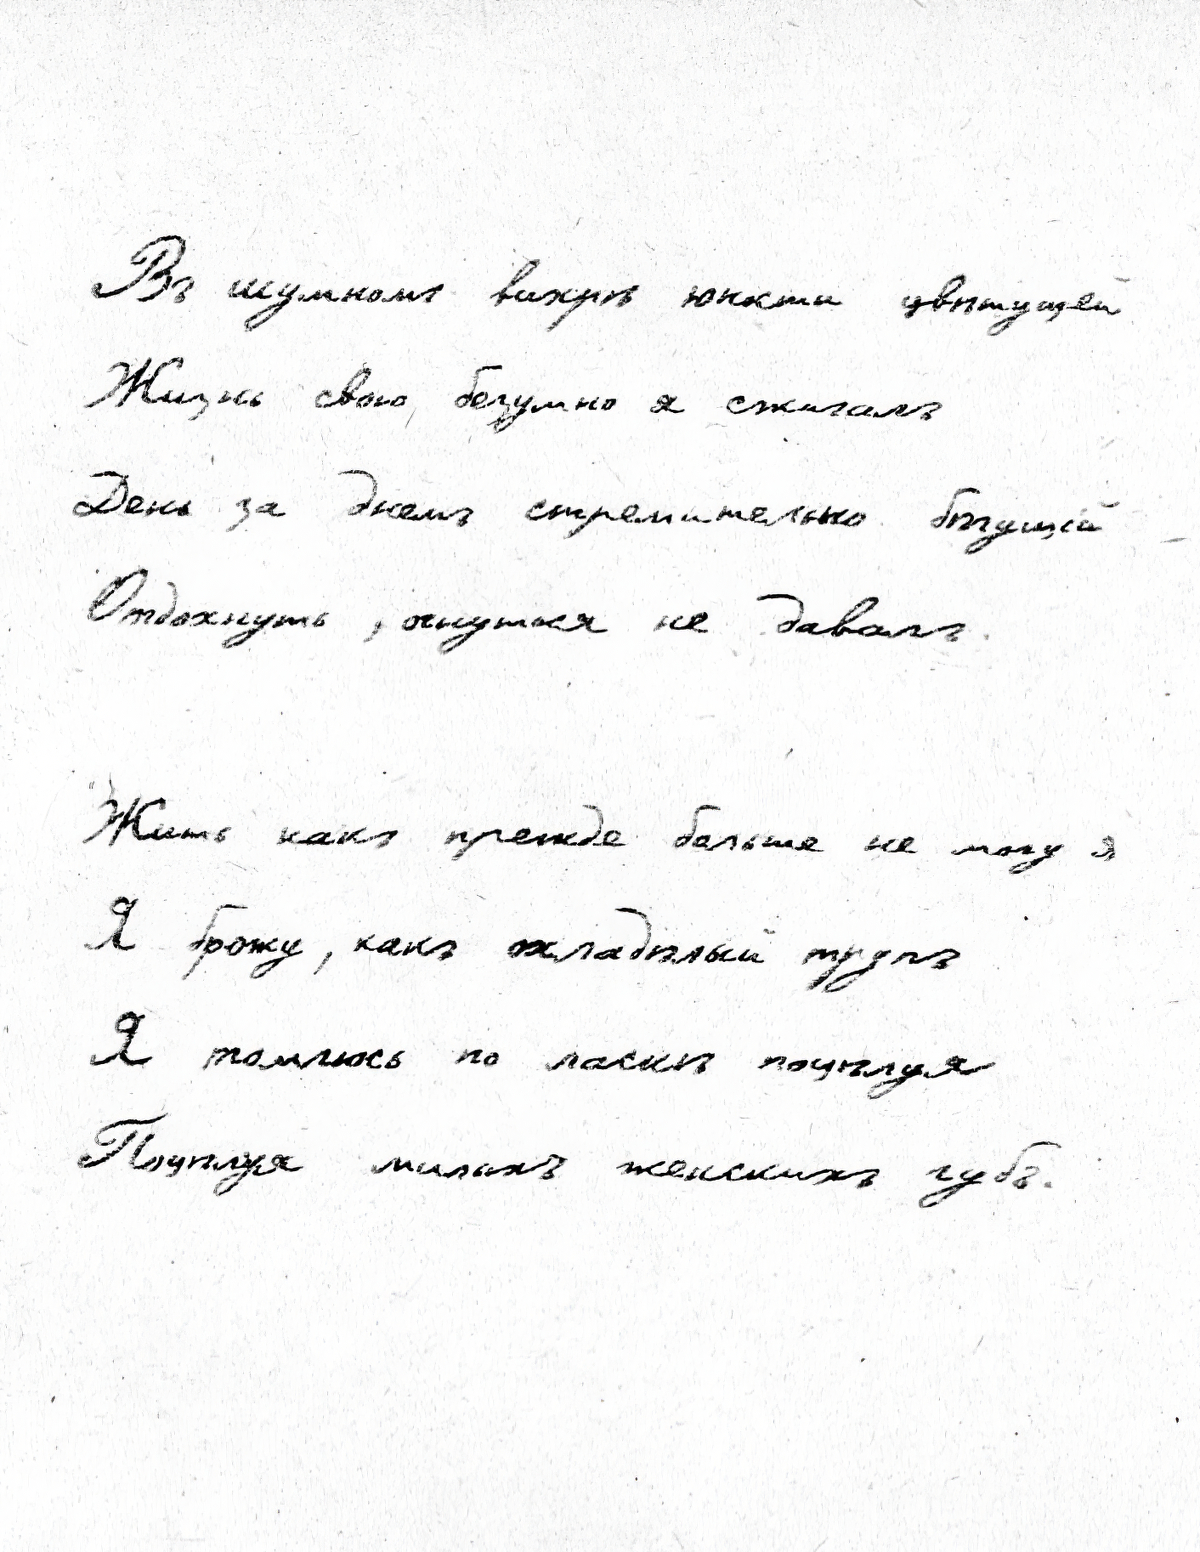 Въ шумномъ вихрѣ юности цвѣтущей
Жизнь свою безумно я сжигалъ
День за днемъ стремительно бѣгущій
Отдохнуть, очнуться не давалъ.
Жить какъ прежде больше не могу я
Я брожу, какъ охладѣлый трупъ
Я томлюсь по ласкѣ поцѣлуя
Поцѣлуя милыхъ женскихъ губъ.